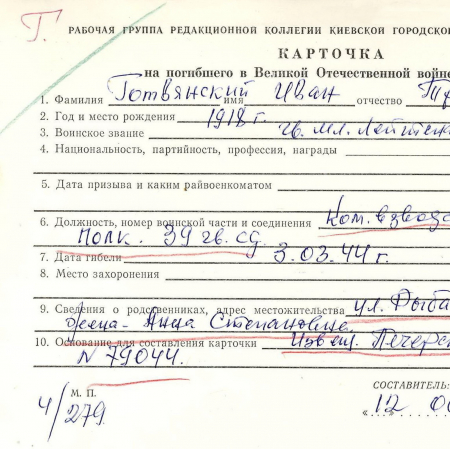 Г.
РАБОЧАЯ ГРУППА РЕДАКЦИОННОЙ КОЛЛЕГИИ КИЕВСКОЙ ГОРОДСКО
КАРТОЧКА
на погибшего в Великой Отечественной войне
1. Фамилия Готвянский имя Иван отчество
2. Год и место рождения 1918 г.
3. Воинское звание гв. мл. Лейтен
4. Национальность, партийность, профессия, награды
5. Дата призыва и каким райвоенкоматом
6. Должность, номер воинской части и соединения Ком. взвода
полк. 39 гв. сд.
7. Дата гибели 3.03.44 г.
8. Место захоронения
9. Сведения о родственниках, адрес местожительства ул. Рыба
жена - Анна Степановна
10. Основание для составления карточки Извещ. Печерс
N 79044.
М. П.
СОСТАВИТЕЛЬ:
4/279
"12